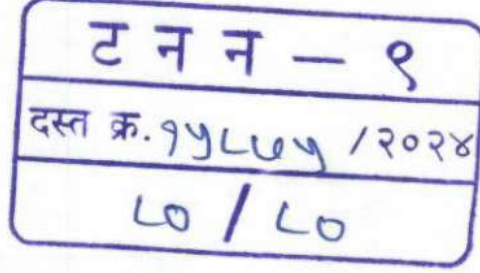 ट न न – ९
दस्त क्र. १५८७५ / २०२४
८० / ८०